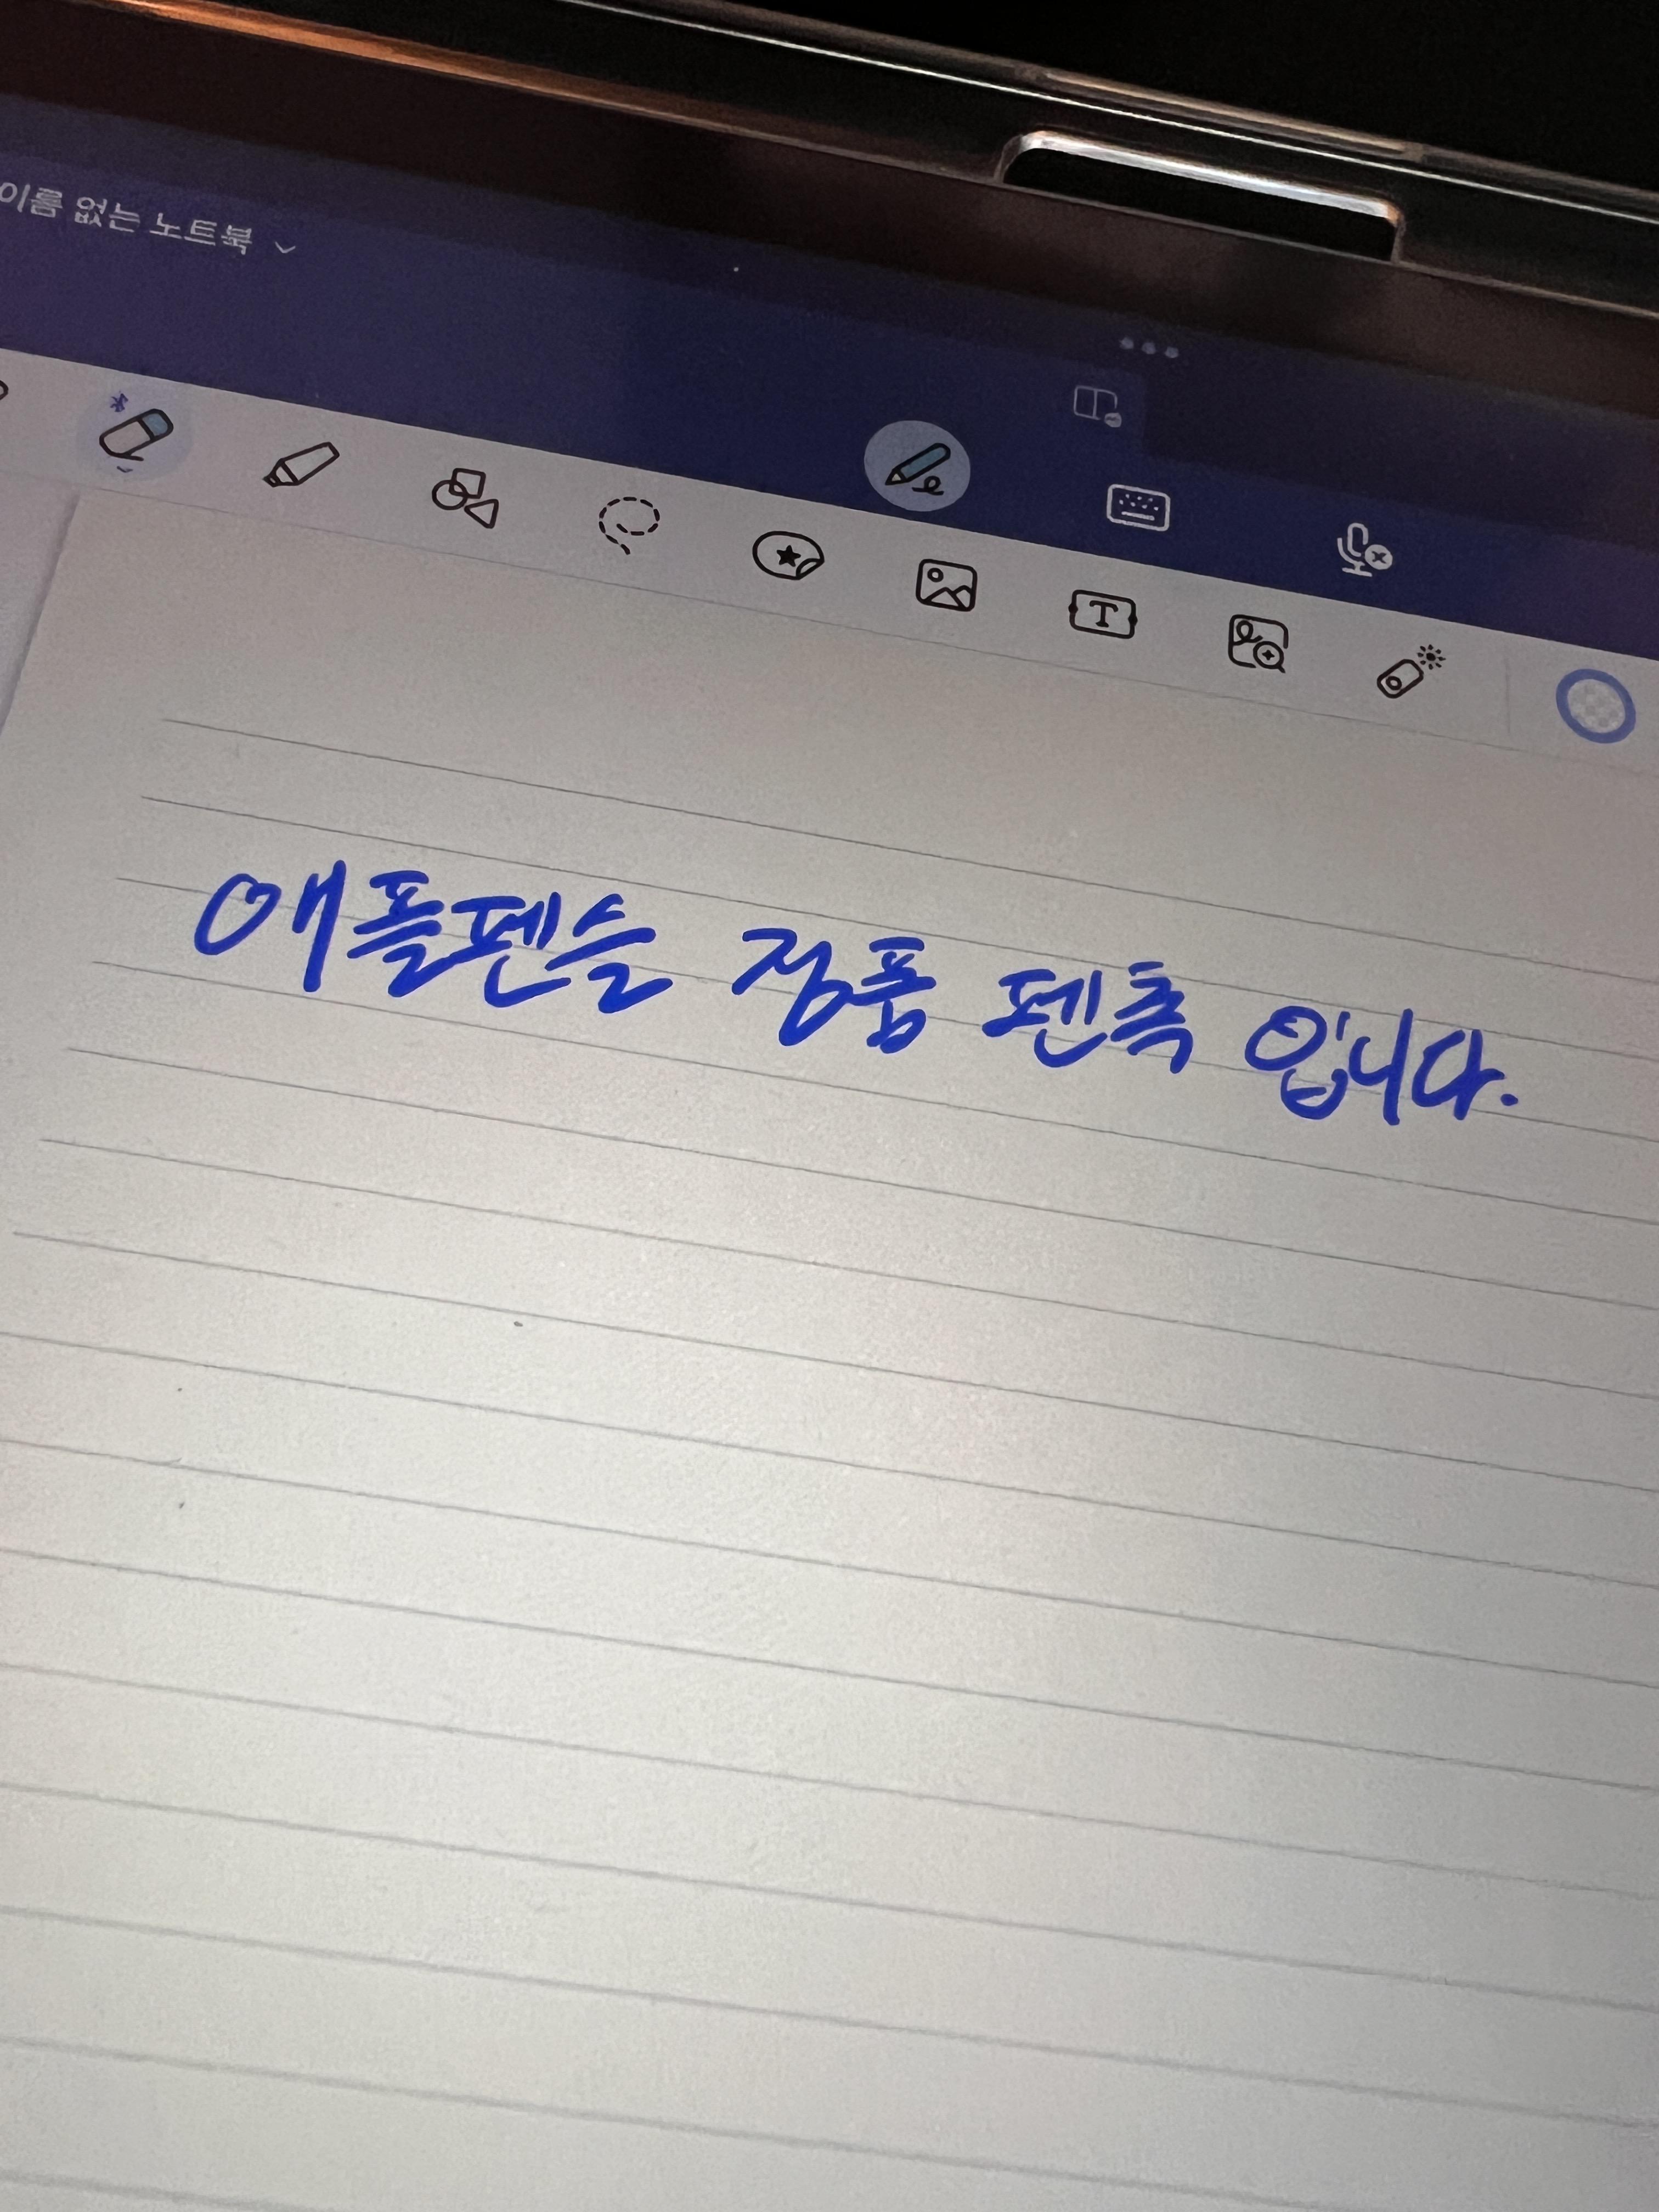 이름 없는 노트북
애플펜슬 정품 펜촉 입니다.